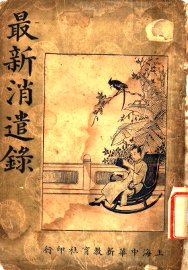 最新消遣錄
上海中華新教育社印行